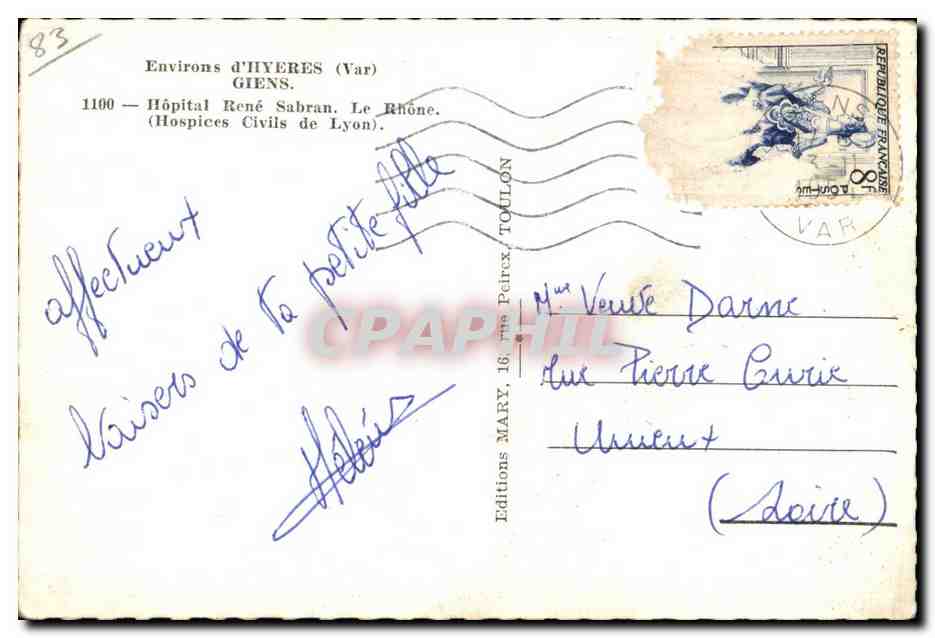 83
Environs d'HYERES (Var)
GIENS.
1100 — Hôpital René Sabran. Le Rhône.
(Hospices Civils de Lyon).
affectueux
baisers de ta petite fille
Hélène
Editions MARY, 16, rue Peirex, TOULON
REPUBLIQUE FRANÇAISE
8F
POSTES
VAR
Mme Veuve Darne
rue Pierre Curie
Unieux
(Loire)
CPAPHIL